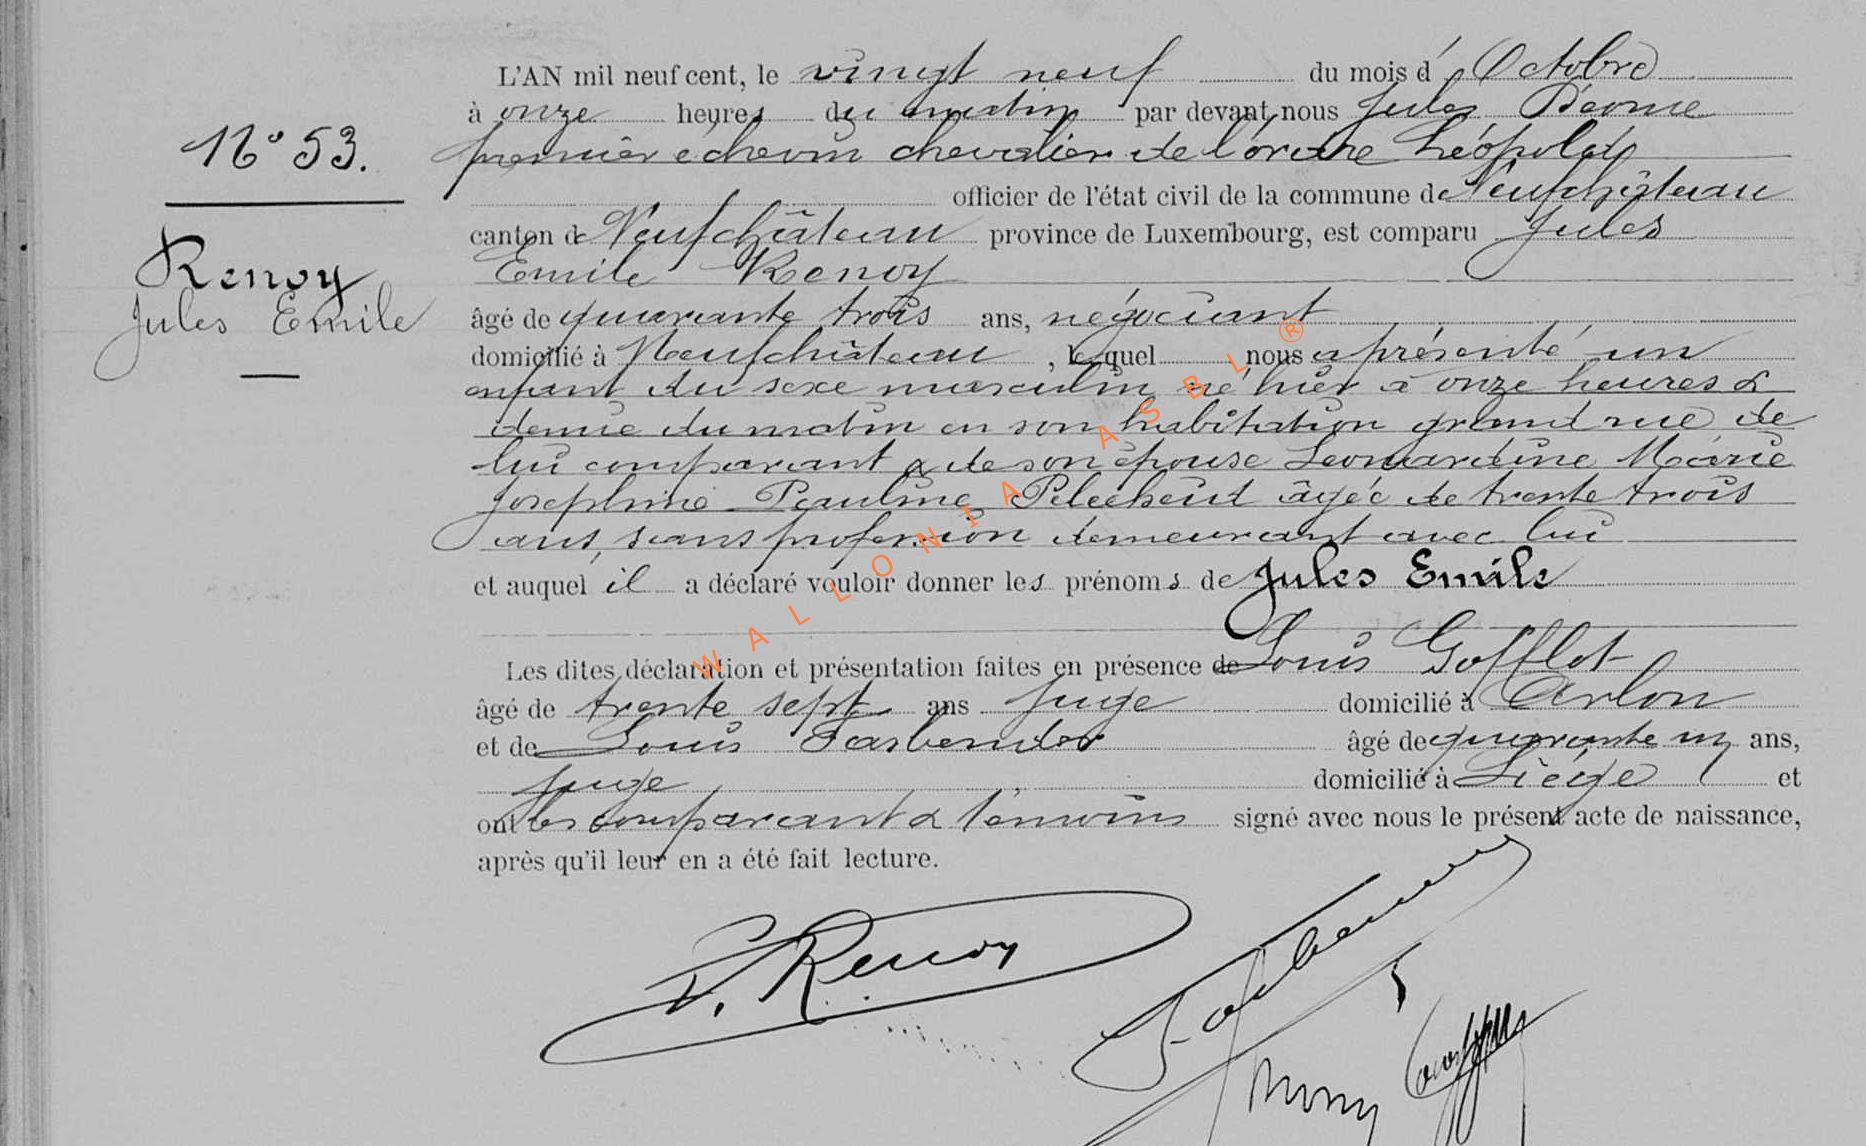 L'AN mil neuf cent, le vingt neuf du mois d' Octobre
à onze heures du matin par devant nous Jules
N° 53.
premier échevin chevalier de l'ordre Léopold
officier de l'état civil de la commune de Neufchâteau
canton de Neufchâteau province de Luxembourg, est comparu Jules
Renoy
Jules Emile
Emile Renoy
âgé de quarante trois ans, négociant
domicilié à Neufchâteau, lequel nous a présenté un
enfant du sexe masculin né hier à onze heures &
demie du matin en son habitation grand rue de
lui comparant & de son épouse Leonardine Marie
Josephine Pauline âgée de trente trois
ans, sans profession demeurant avec lui
et auquel il a déclaré vouloir donner les prénoms de Jules Emile
Les dites déclaration et présentation faites en présence de Louis Gofflot
âgé de trente sept ans juge domicilié à Arlon
et de Louis Fasbender âgé de quarante un ans,
juge domicilié à Liége et
ont les comparant & témoins signé avec nous le présent acte de naissance,
après qu'il leur en a été fait lecture.
J. Renoy
WALLONIA ASBL ®